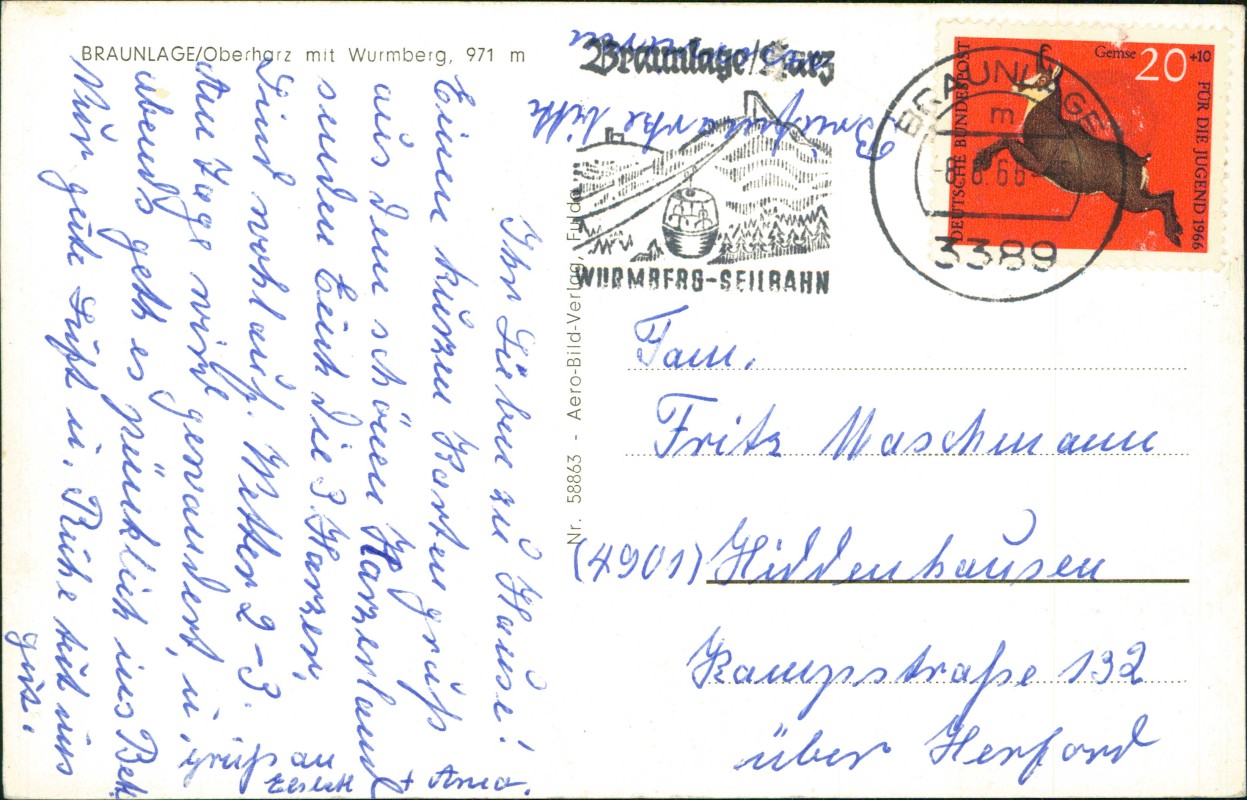 BRAUNLAGE/Oberharz mit Wurmberg, 971 m
Ihr Lieben zu Hause!
Einen kurzen Kartengruß
aus dem schönen Harzerland
senden Euch die 3 Harzer,
Sind wohlauf. Wetter 2-3.
Am Tage wird gewandert, u.
abends geht es pünktlich ins Bett.
Nun gute Luft u. Ruhe tut uns
gut.
Gruß an
+ Arno.
Nr. 58863 - Aero-Bild-Verlag, Fulda
Briefmarke bitte
Braunlage/Harz
WURMBERG-SEILBAHN
BRAUNLAGE
m
-8.8.66
3389
Gemse 20+10
DEUTSCHE BUNDESPOST
FÜR DIE JUGEND 1966
Fam.
Fritz Maschmann
(4901) Hiddenhausen
Kampstraße 132
über Herford